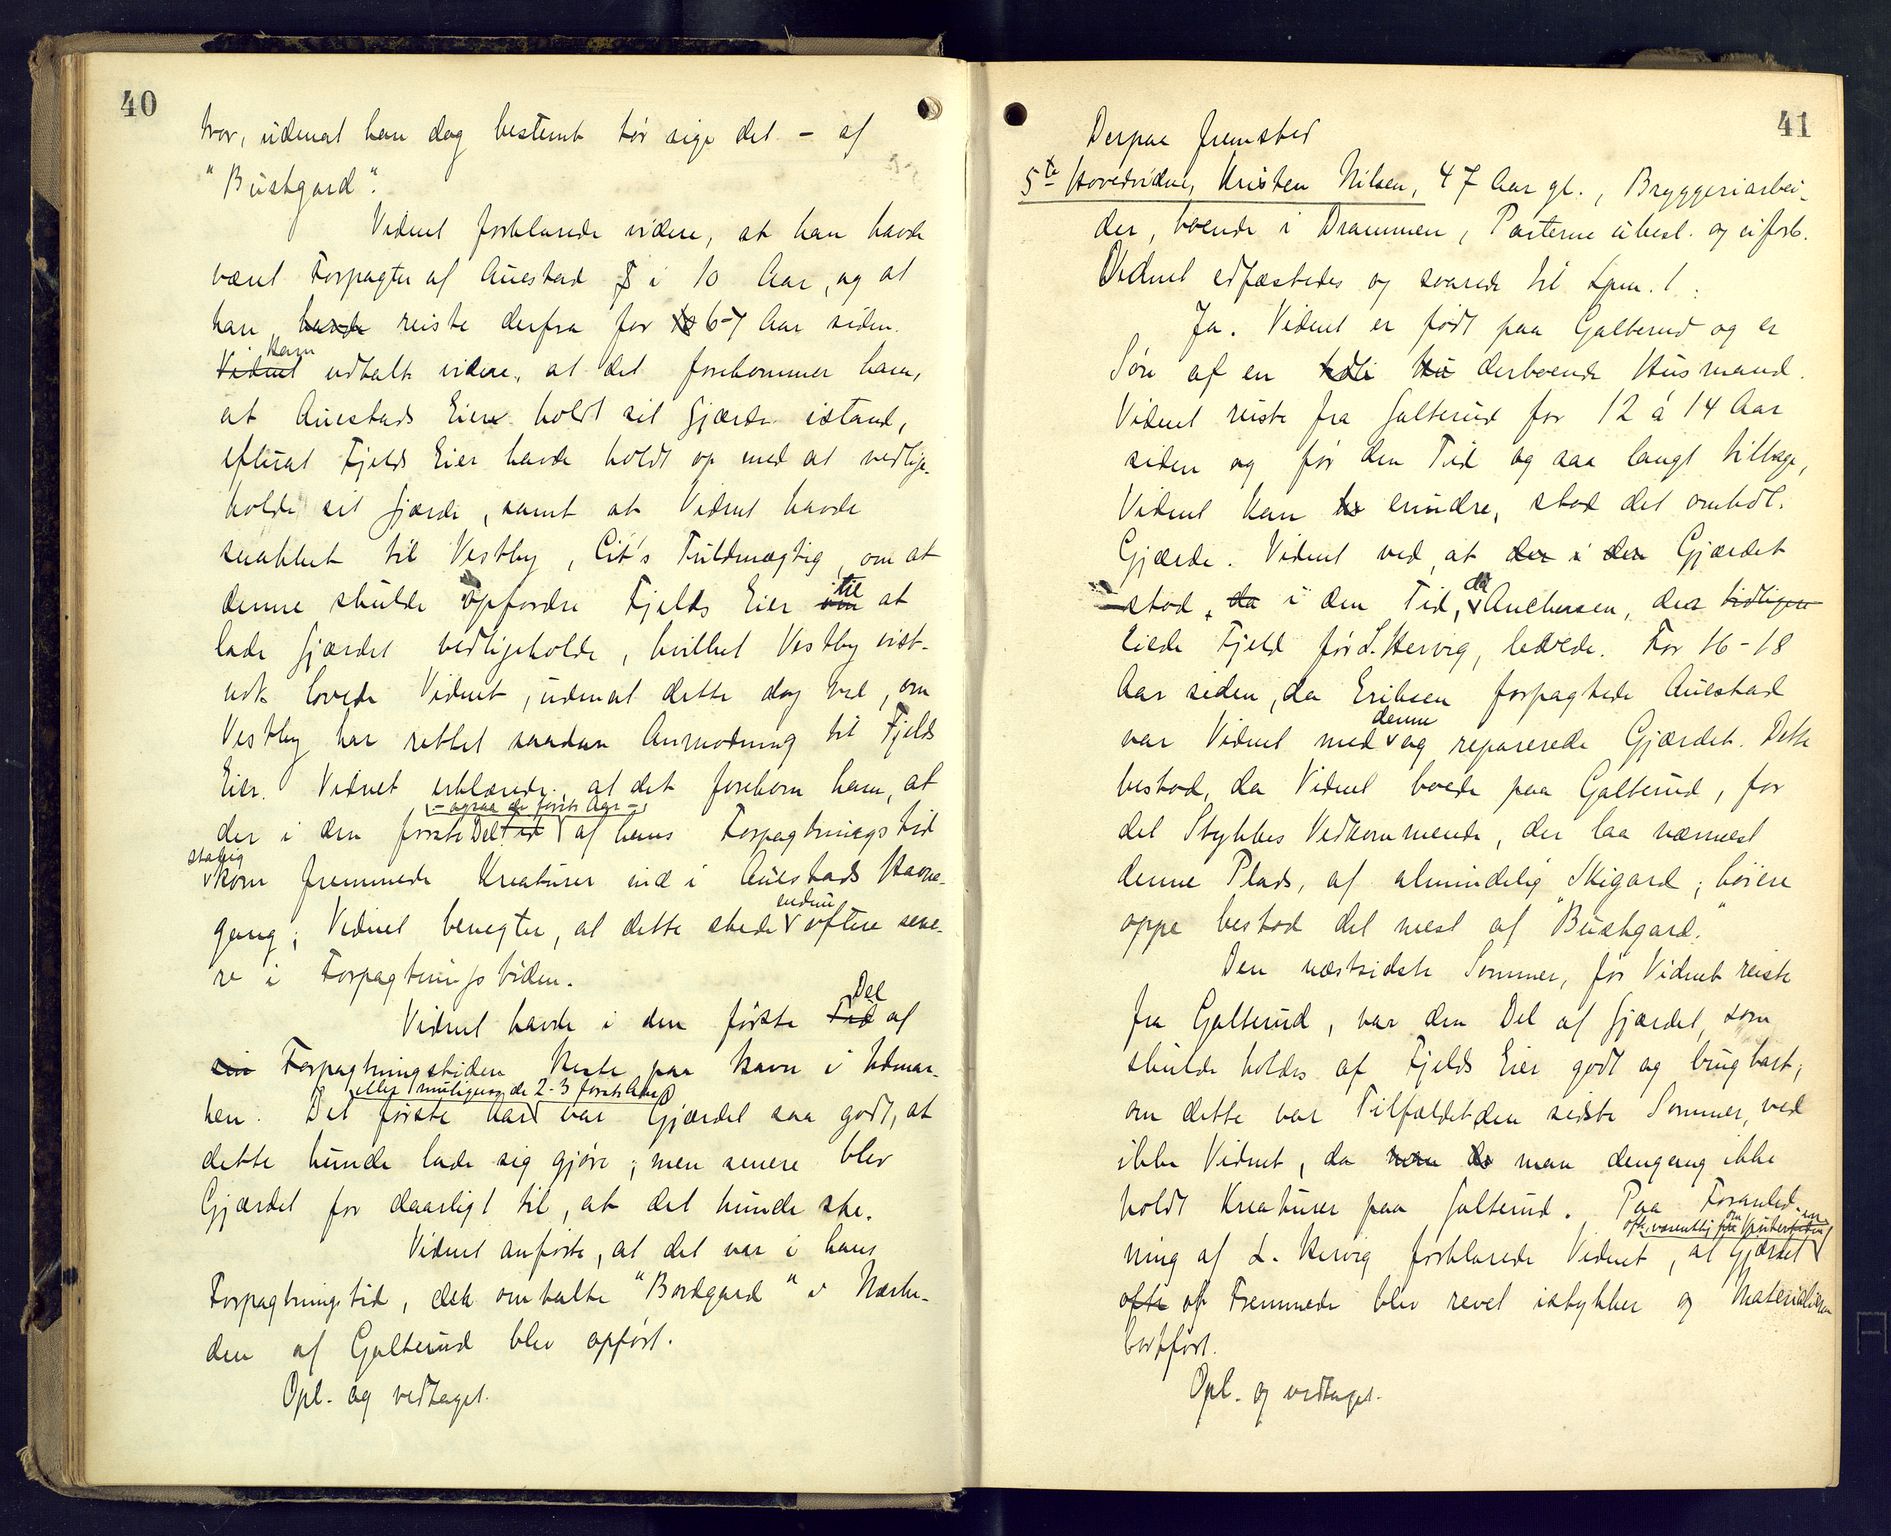 40
tror, udenat han dog bestemt tør sige det - af
"Buskgard".
Vidnet forklarede videre, at han havde
været Forpagter af Auestad i 10 Aar, og at
han havde reiste derfra for 10 6-7 Aar siden.
Vidnet Ham udtalte videre, at det forekommer ham,
at Auestads Eier holdt sit Gjærde istand,
efterat Fjelds Eier havde holdt op med at vedlige-
holde sit Gjærde, samt at Vidnet havde
snakket til Vestby, Cit's Fuldmægtig, om at
denne skulde opfordre Fjelds Eier om til at
lade Gjærdet vedligeholde, hvilket Vestby vist-
nok lovede Vidnet, udenat dette dog ved, om
Vestby har rettet saadan Anmodning til Fjelds
Eier. Vidnet erklærede, at det forekom ham, at
- ogsaa de første Aar -
der i den første Del Tid af hans Forpagtningstid
stadig
kom fremmede Kreaturer ind i Auestads Havne-
gang; Vidnet benegter, at dette skede endnu oftere sene-
re i Forpagtningstiden.
Vidnet havde i den første Tid Del af
sin Forpagtningstiden Heste paa Havn i Udmar-
eller muligens de 2-3 første Aar
ken. Det første Aar var Gjærdet saa godt, at
dette kunde lade sig gjøre; men senere blev
Gjærdet for daarligt til, at det kunde ske.
Vidnet anførte, at det var i hans
Forpagtningstid, det omtalte "Bordgard" i Nærhe-
den af Galterud blev opført.
Opl. og vedtaget.
41
Derpaa fremstod
5te Hovedvidne, Kristen Nilsen, 47 Aar gl., Bryggeriarbei-
der, boende i Drammen, Parterne ubesl. og uforb.
Vidnet edfæstedes og svarede til Spm. 1:
Ja. Vidnet er født paa Galterud og er
Søn af en derboende Husmand.
Vidnet reiste fra Galterud for 12 á 14 Aar
siden og før den Tid og saa langt tilbage,
Vidnet kan erindre, stod det omhdl.
Gjærde. Vidnet ved, at der i den Gjærdet
stod, da i den Tid, da Anchersen, der tidligere
eiede Fjeld før L. Hervig, levede. For 16-18
Aar siden, da Eriksen forpagtede Auestad
var Vidnet med denne og reparerede Gjærdet. Dette
bestod, da Vidnet boede paa Galterud, for
det Stykkes Vedkommende, der laa nærmest
denne Plads, af almindelig Skigard; høiere
oppe bestod det mest af "Buskgard."
Den næstsidste Sommer, før Vidnet reiste
fra Galterud, var den Del af Gjærdet, som
skulde holdes af Fjelds Eier godt og brugbart;
om dette var Tilfældet den sidste Sommer, ved
ikke Vidnet, da man dengang ikke
holdt Kreaturer paa Galterud. Paa Foranled-
ofte, væsentlig om Vinteren
ning af L. Hervig forklarede Vidnet, at Gjærdet
ofte af Fremmede blev revet istykker og Materialierne
bortført.
Opl. og vedtaget.